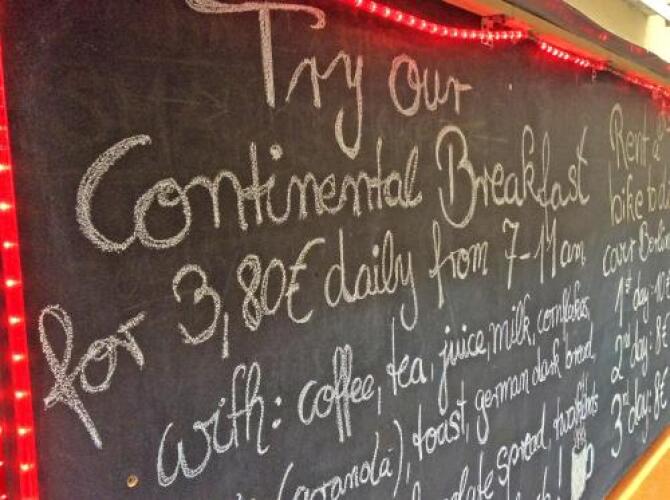 Try our
Continental Breakfast
for 3,80€ daily from 7-11 am,
with: coffee, tea, juice, milk, cornflakes,
(granola), toast, german dark bread,
spread,
Rent a
bike to
1st day-
2nd day: 8€
3rd day: 8€